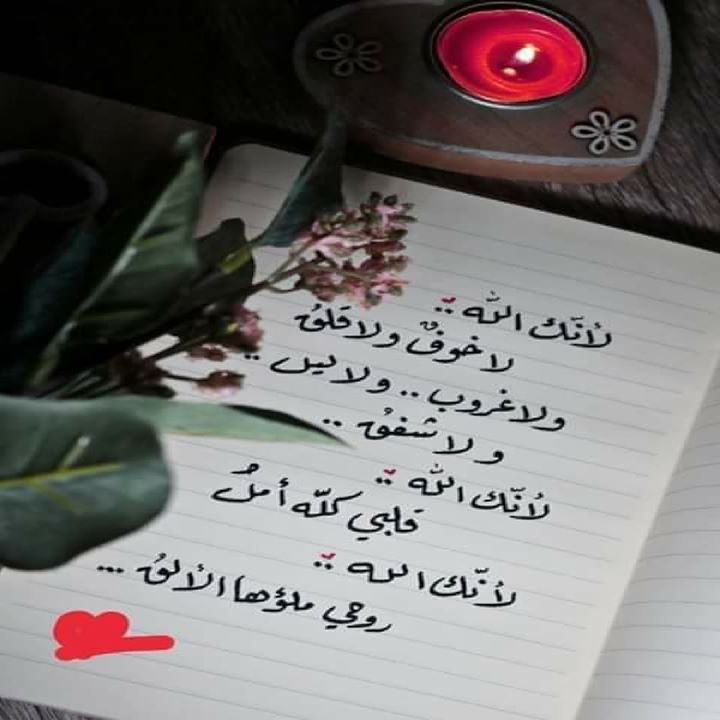 لأنّك الله ..
لا خوفٌ ولا قلقُ
ولا غروب .. ولا ليل ..
ولا شفقُ ..
لأنّك الله ..
قلبي كلّه أملُ
لأنّك الله ..
روحي ملؤها الألقُ ...